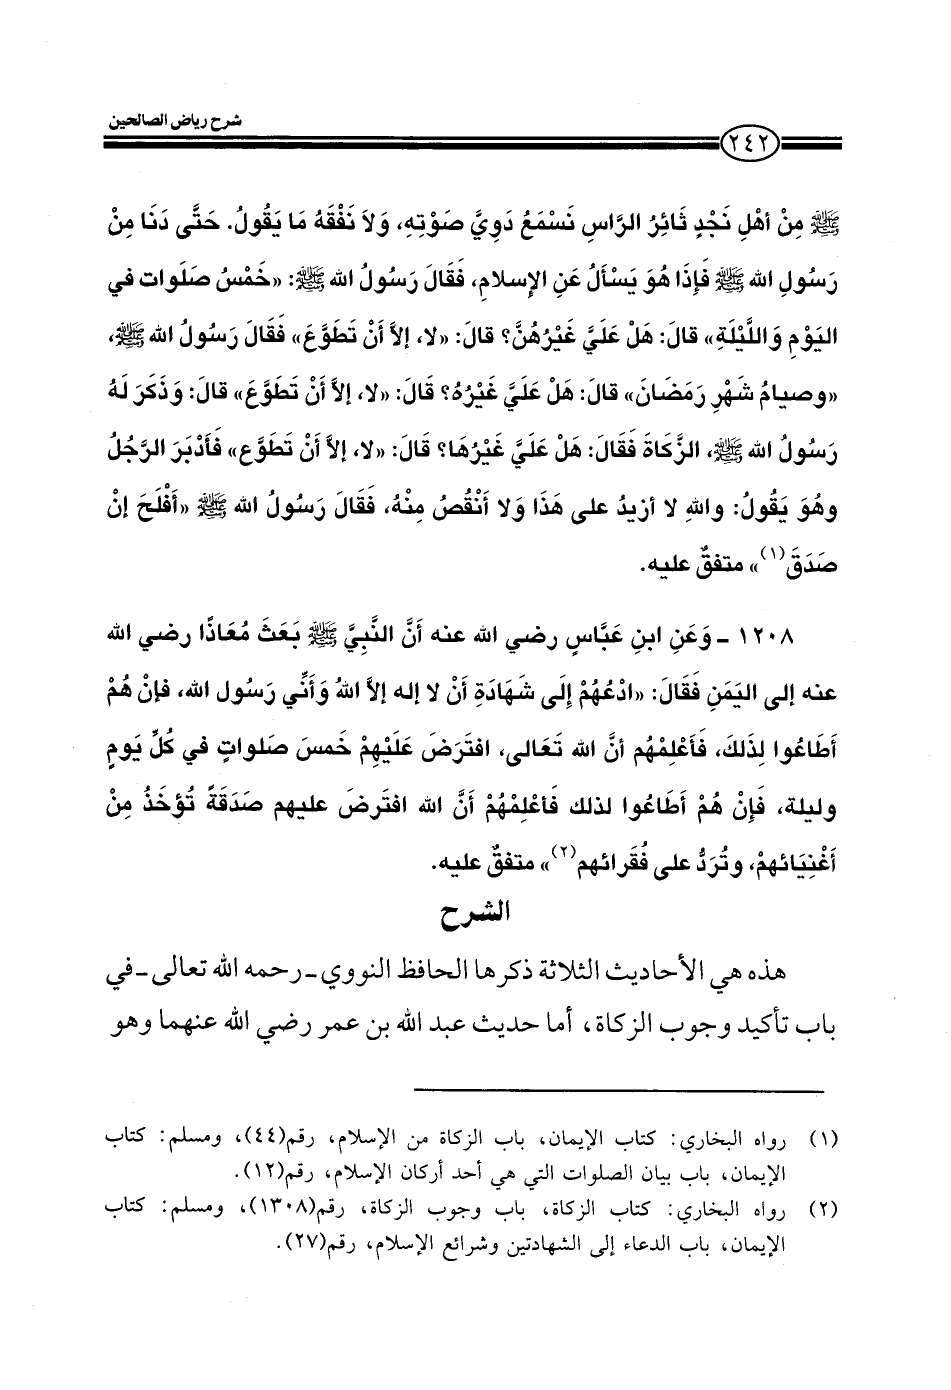 شرح رياض الصالحين
٢٤٢
ﷺ مِنْ أهْلِ نَجْدٍ ثَائِرُ الرَّاسِ نَسْمَعُ دَوِيَّ صَوْتِهِ، وَلاَ نَفْقَهُ مَا يَقُولُ. حَتَّى دَنَا مِنْ
رَسُولِ الله ﷺ فَإذَا هُوَ يَسْألُ عَنِ الإسلامِ، فَقَالَ رَسُولُ الله ﷺ: «خَمْسُ صَلَوات في
اليَوْمِ وَاللَّيْلَةِ» قالَ: هَلْ عَلَيَّ غَيْرُهُنَّ؟ قالَ: «لا، إلاَّ أنْ تَطَوَّعَ» فَقَالَ رَسُولُ الله ﷺ،
«وصيامُ شَهْرِ رَمَضَان» قالَ: هَلْ عَلَيَّ غَيْرُهُ؟ قَالَ: «لا، إلاَّ أنْ تَطَوَّعَ» قالَ: وَذَكَرَ لَهُ
رَسُولُ الله ﷺ، الزَّكَاةَ فَقَالَ: هَلْ عَلَيَّ غَيْرُهَا؟ قَالَ: «لا، إلاَّ أنْ تَطَوَّع» فَأدْبَرَ الرَّجُلُ
وهُوَ يَقُولُ: واللهِ لا أزيدُ على هَذَا وَلا أَنْقُصُ مِنْهُ، فَقَالَ رَسُولُ الله ﷺ «أَفْلَحَ إنْ
صَدَقَ(١)» متفقٌ عليه.
١٢٠٨ - وَعَنِ ابنِ عَبَّاسٍ رضي الله عنه أنَّ النَّبِيَّ ﷺ بَعَثَ مُعَاذًا رضي الله
عنه إلى اليَمَنِ فَقَالَ: «ادْعُهُمْ إِلَى شَهَادَةِ أنْ لا إله إلاَّ اللهُ وَأنِّي رَسُول الله، فإنْ هُمْ
أطَاعُوا لِذَلكَ، فَأعْلِمْهُم أنَّ الله تَعَالى، افتَرَضَ عَلَيْهِمْ خَمسَ صلواتٍ في كُلِّ يَومٍ
وليلة، فَإنْ هُمْ أطَاعُوا لذلك فَأعْلِمْهُمْ أنَّ الله افترضَ عليهم صَدَقَةً تُؤخَذُ مِنْ
أغْنِيَائهمْ، وتُرَدُّ على فُقَرائهم(٢)» متفقٌ عليه.
الشرح
هذه هي الأحاديث الثلاثة ذكرها الحافظ النووي - رحمه الله تعالى - في
باب تأكيد وجوب الزكاة، أما حديث عبد الله بن عمر رضي الله عنهما وهو
(١) رواه البخاري: كتاب الإيمان، باب الزكاة من الإسلام، رقم(٤٤)، ومسلم: كتاب
الإيمان، باب بيان الصلوات التي هي أحد أركان الإسلام، رقم(١٢).
(٢) رواه البخاري: كتاب الزكاة، باب وجوب الزكاة، رقم(١٣٠٨)، ومسلم: كتاب
الإيمان، باب الدعاء إلى الشهادتين وشرائع الإسلام، رقم(٢٧).